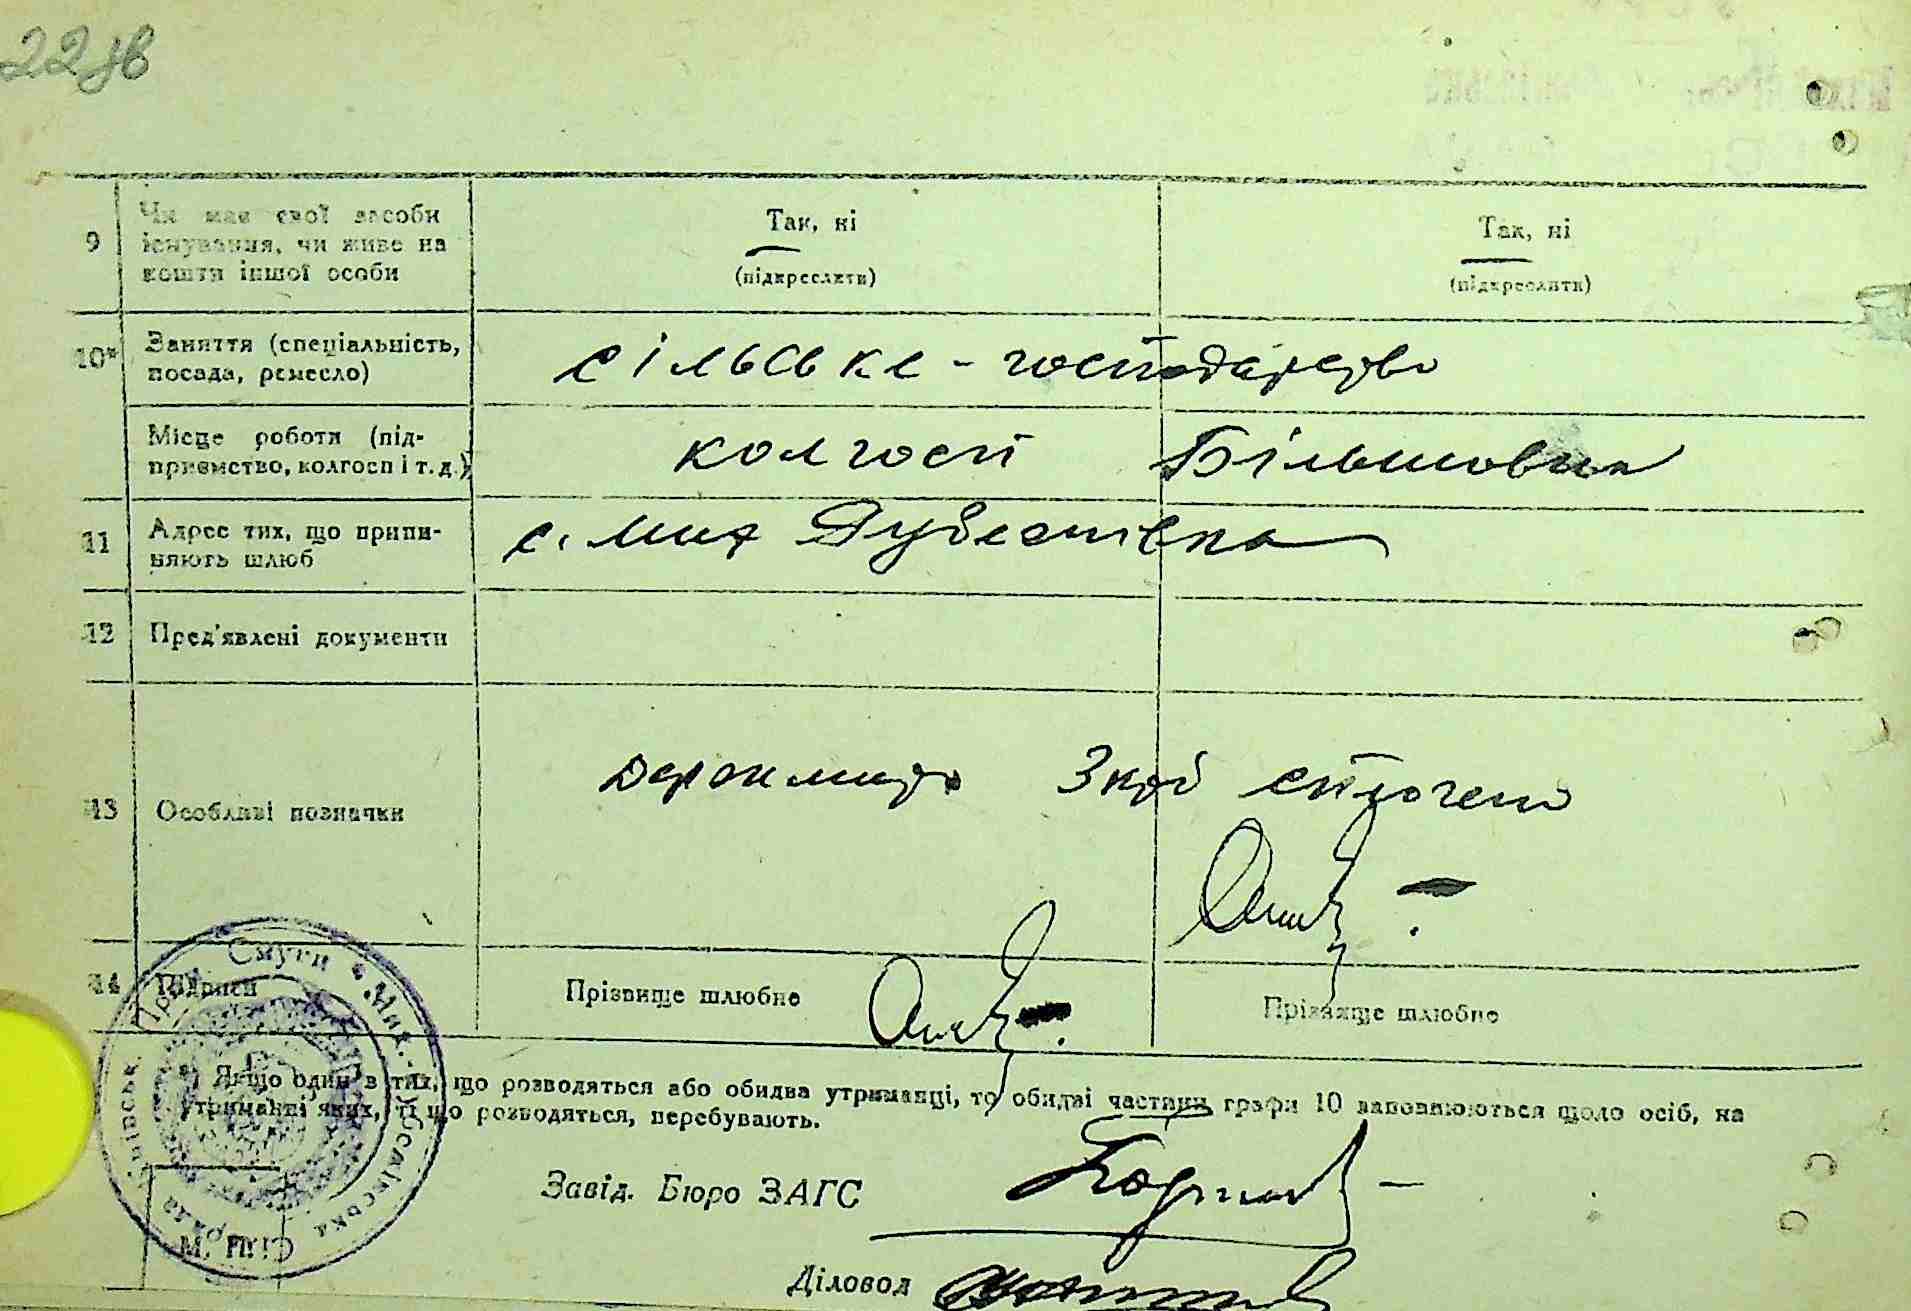 22зв
9 Чи має свої засоби існування, чи живе на кошти іншої особи
Так, ні
(підкреслити)
Так, ні
(підкреслити)
10* Заняття (спеціальність, посада, ремесло)
сільське-господарство
Місце роботи (підприємство, колгосп і т. д.)
колгосп Більшовик
11 Адрес тих, що припиняють шлюб
с. Мих Рубеснівка
12 Пред'явлені документи
13 Особливі позначки
держмито 3 крб сплочено
14 Підписи
Прізвище шлюбне
Прізвище шлюбне
*) Якщо один в тих, що розводяться або обидва утриманці, то обидві частини графи 10 заповнюються щодо осіб, на
утриманні яких, ті що розводяться, перебувають.
Завід. Бюро ЗАГС
М. П.
Діловод